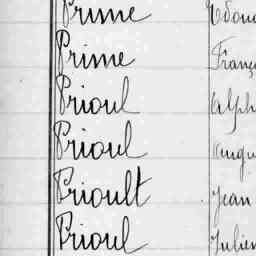 Prime Édoua
Prime Franç
Prioul Alph
Prioul Augu
Prioult Jean
Prioul Julien